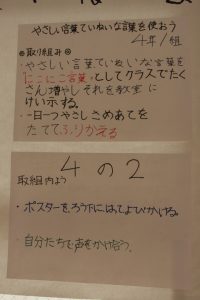 やさしい言葉ていねいな言葉を使おう
4年1組
◎取り組み◎
・やさしい言葉ていねいな言葉を
にこにこ言葉としてクラスでたく
さん増やしそれを教室に
けい示する。
・一日一つやさしさめあてを
たててふりかえる
4の2
取組内よう
・ポスターをろう下にはってよびかける。
・自分たちで声をかけ合う。